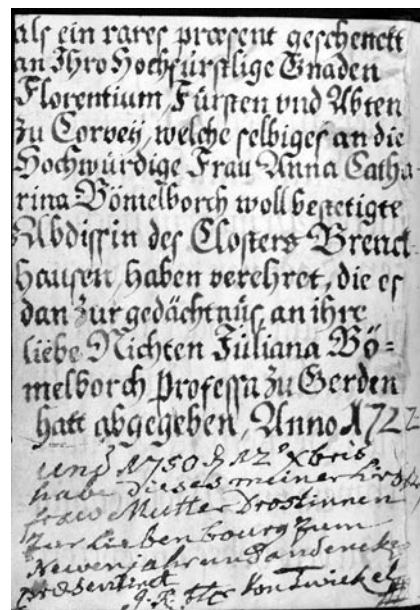 als ein rares præsent geschenckt
an Ihro Hochfürstlige Gnaden
Florentium Fürsten vnd Abten
zu Corveÿ, welche selbiges an die
Hochwürdige Frau Anna Catha-
rina Bömelborch woll bestetigte
Abdissin des Closters Brenck-
hausen haben verehret, die es
dan zur gedächtnüs an ihre
liebe Nichten Juliana Bö-
melborch Professa zu Gerden
hatt abgegeben, Anno 1722
und 1750 d 12 xbris
habe dieses meiner
fraw Mutter Drostinnen
zur Liebenbourg zum
Newen jahr und andencken
præsentirt
von Twickel